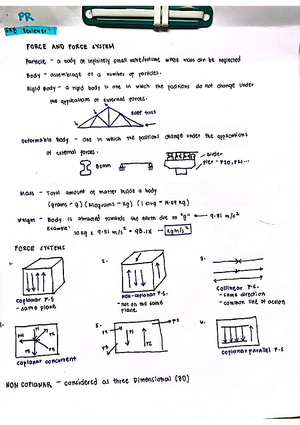 PR
FORCE AND FORCE SYSTEM
Particle - a body of infinitely small volume whose mass can be neglected
Body - assemblage of a number of particles.
Rigid Body - a rigid body is one in which the positions do not change under
the applications of external forces.
roof truss
Deformable Body - one in which the positions change under the applications
of external forces.
Beam
Girder
pier
Mass - Total amount of matter inside a body
Weight - Body is attracted towards the earth due to "g" 9.81 m/s²
Example: 10 kg x 9.81 m/s² = 98.1 N kg m/s²
FORCE SYSTEMS
1.
2.
3.
coplanar F.S
- same plane
non-coplanar F.S
- not on the same
plane
Collinear F.S.
- same direction
- common line of action
5.
coplanar concurrent
coplanar parallel F.S
NON COPLANAR - considered as three Dimensional (3D)